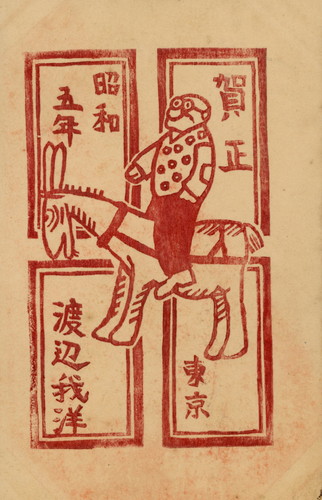 賀正
昭和
五年
東京
渡辺我洋